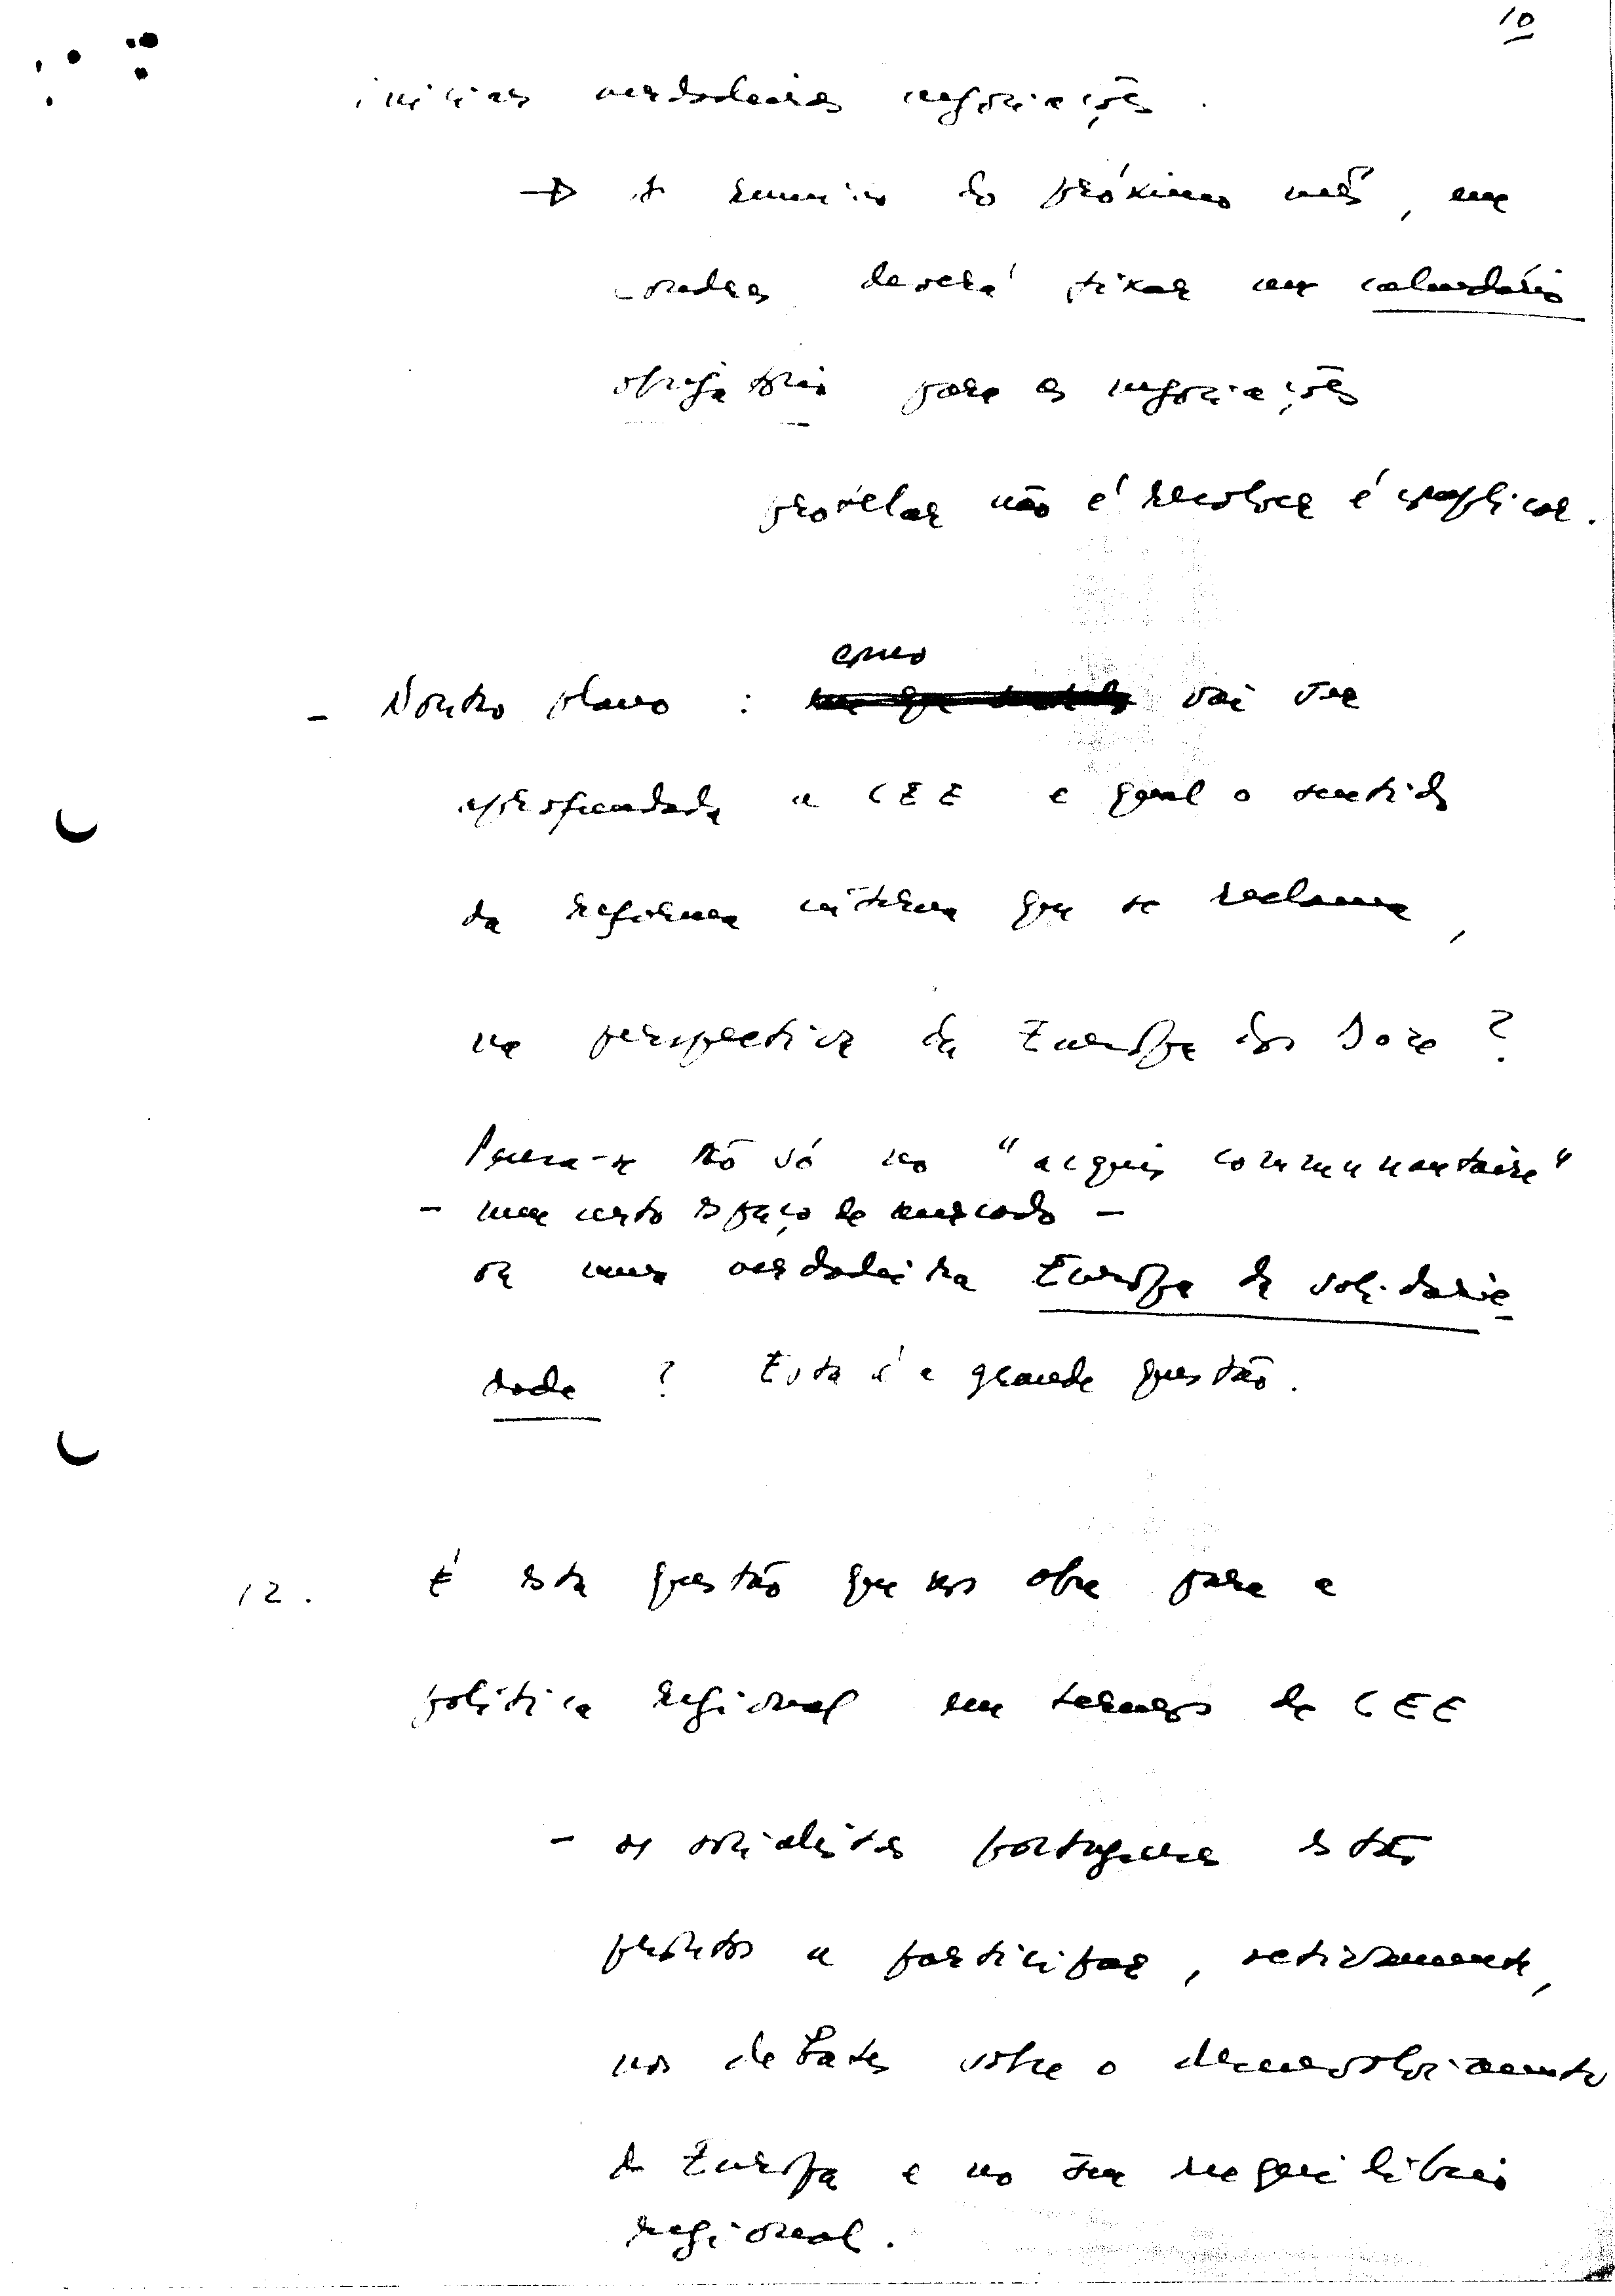 10
iniciar verdadeiras negociações.
→ A reunião do próximo mês, em
Londres deverá fixar um calendário
obrigatório para as negociações
protelar não é resolver é complicar.
como
- Noutro plano : vai ser
aprofundada a CEE e qual o sentido
da reforma interna que se reclama,
na perspectiva da Europa dos Doze ?
Pensa-se tão só no "acquis communautaire"
- num certo espaço de mercado -
ou numa verdadeira Europa da solidarie-
dade ? Esta é a grande questão.
12. É esta questão que nos abre para a
política regional em termos de CEE
- os socialistas portugueses estão
prontos a participar, activamente,
nos debates sobre o desenvolvimento
da Europa e no seu reequilíbrio
regional.